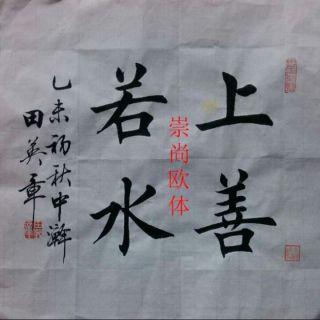 上善
若水
崇尚欧体
乙未初秋中澣
田英章